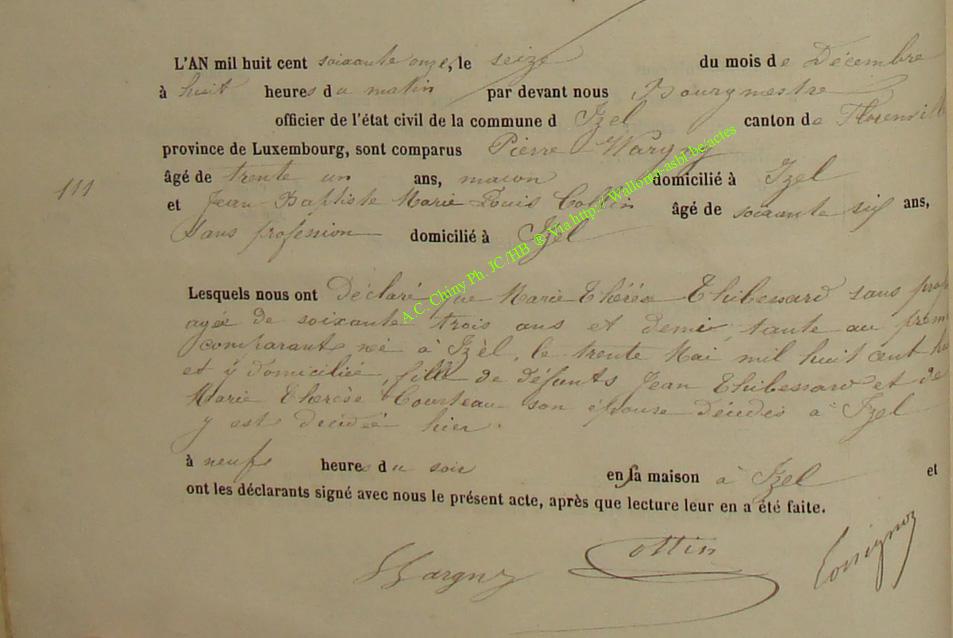 L'AN mil huit cent soixante onze, le seize du mois de Décembre
à huit heures du matin par devant nous Bourgmestre
officier de l'état civil de la commune d Izel canton de Florenville
province de Luxembourg, sont comparus Pierre Wargny
âgé de trente un ans, macon domicilié à Izel
111
et Jean Baptiste Marie Louis Cottin âgé de soixante six ans,
Sans profession domicilié à Izel
A.C. Chiny Ph. JC/HB ® Via http://Wallonia-asbl.be/actes
Lesquels nous ont Déclaré que Marie Thérèse Thibessard sans prof
agée de soixante trois ans et demi, tante au prem
comparant né à Izel, le trente Mai mil huit cent
et y domiciliée, fille de défunts Jean Thibessard et de
Marie Thérèse Courteau son épouse décédés à Izel
y est décédée hier.
à neufs heures du soir en sa maison à Izel et
ont les déclarants signé avec nous le présent acte, après que lecture leur en a été faite.
Wargny Cottin